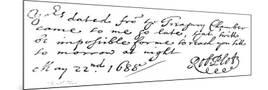 Yrs dated from ye Treasury Chamber
came to me so late, that twill
be impossible for me to reach you till
to morrow at night
Rob: Plot
May 22nd. 1688